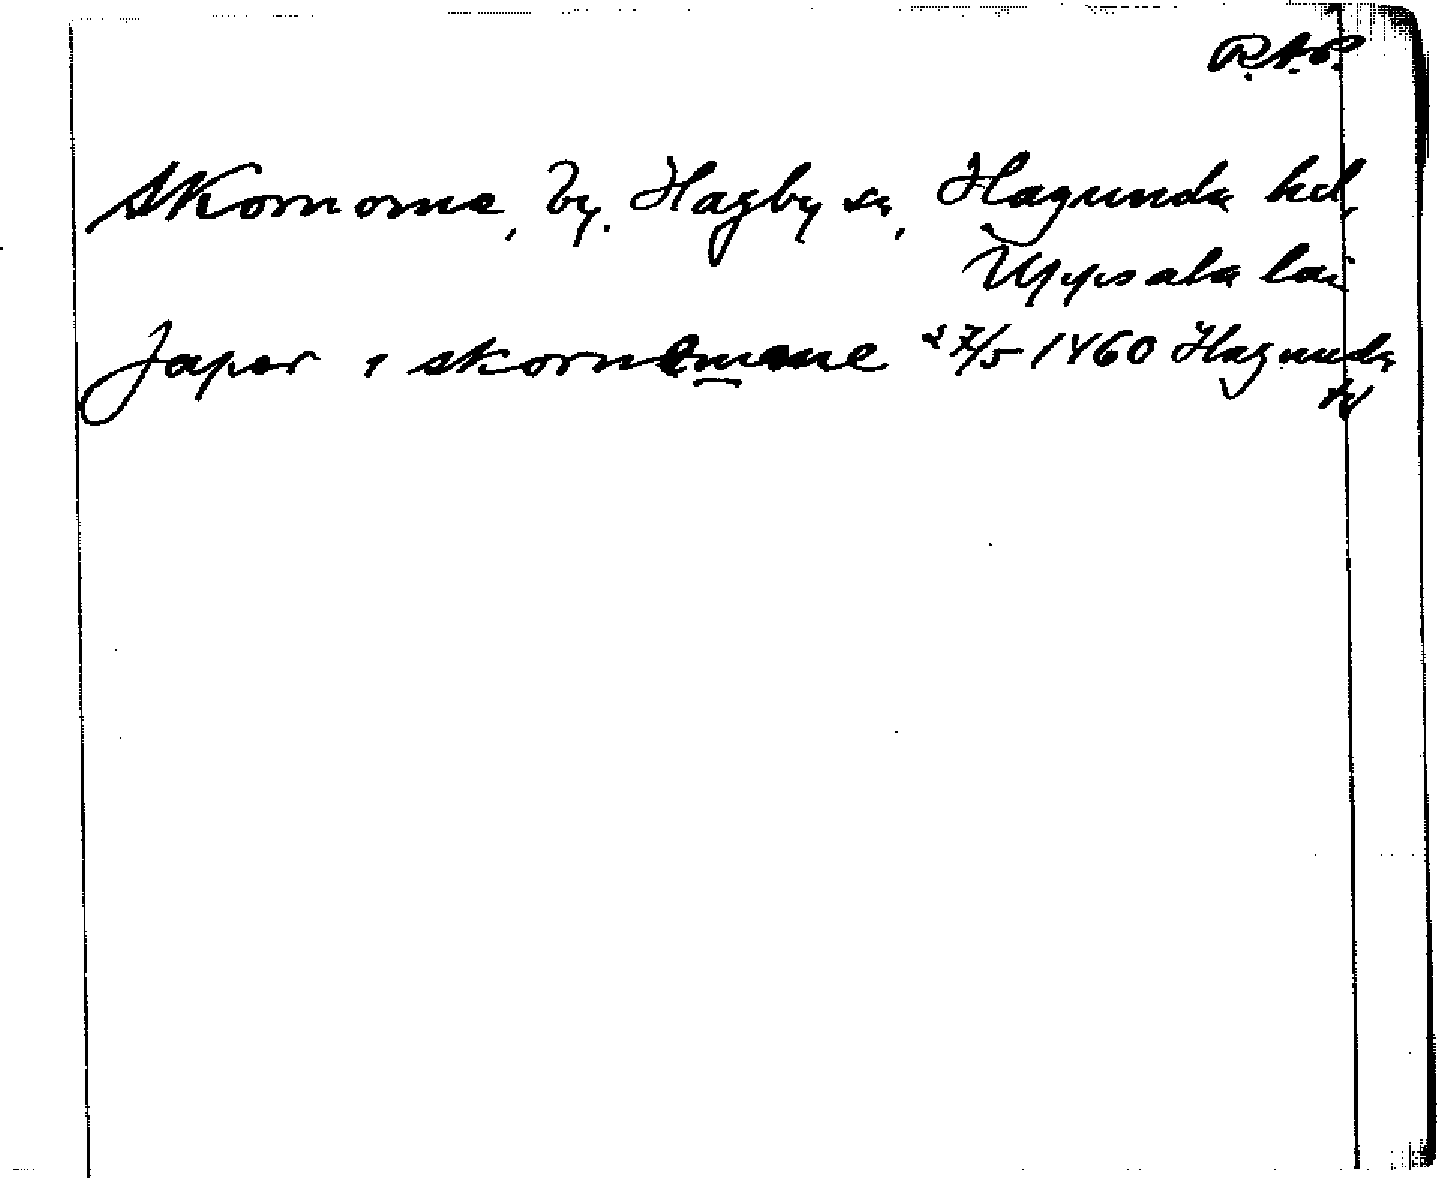 R.A.P.
Skornome, by, Hagby sn, Hagunda hd,
Uppsala län
Japer i skornemane 27/5 1460 Hagunda